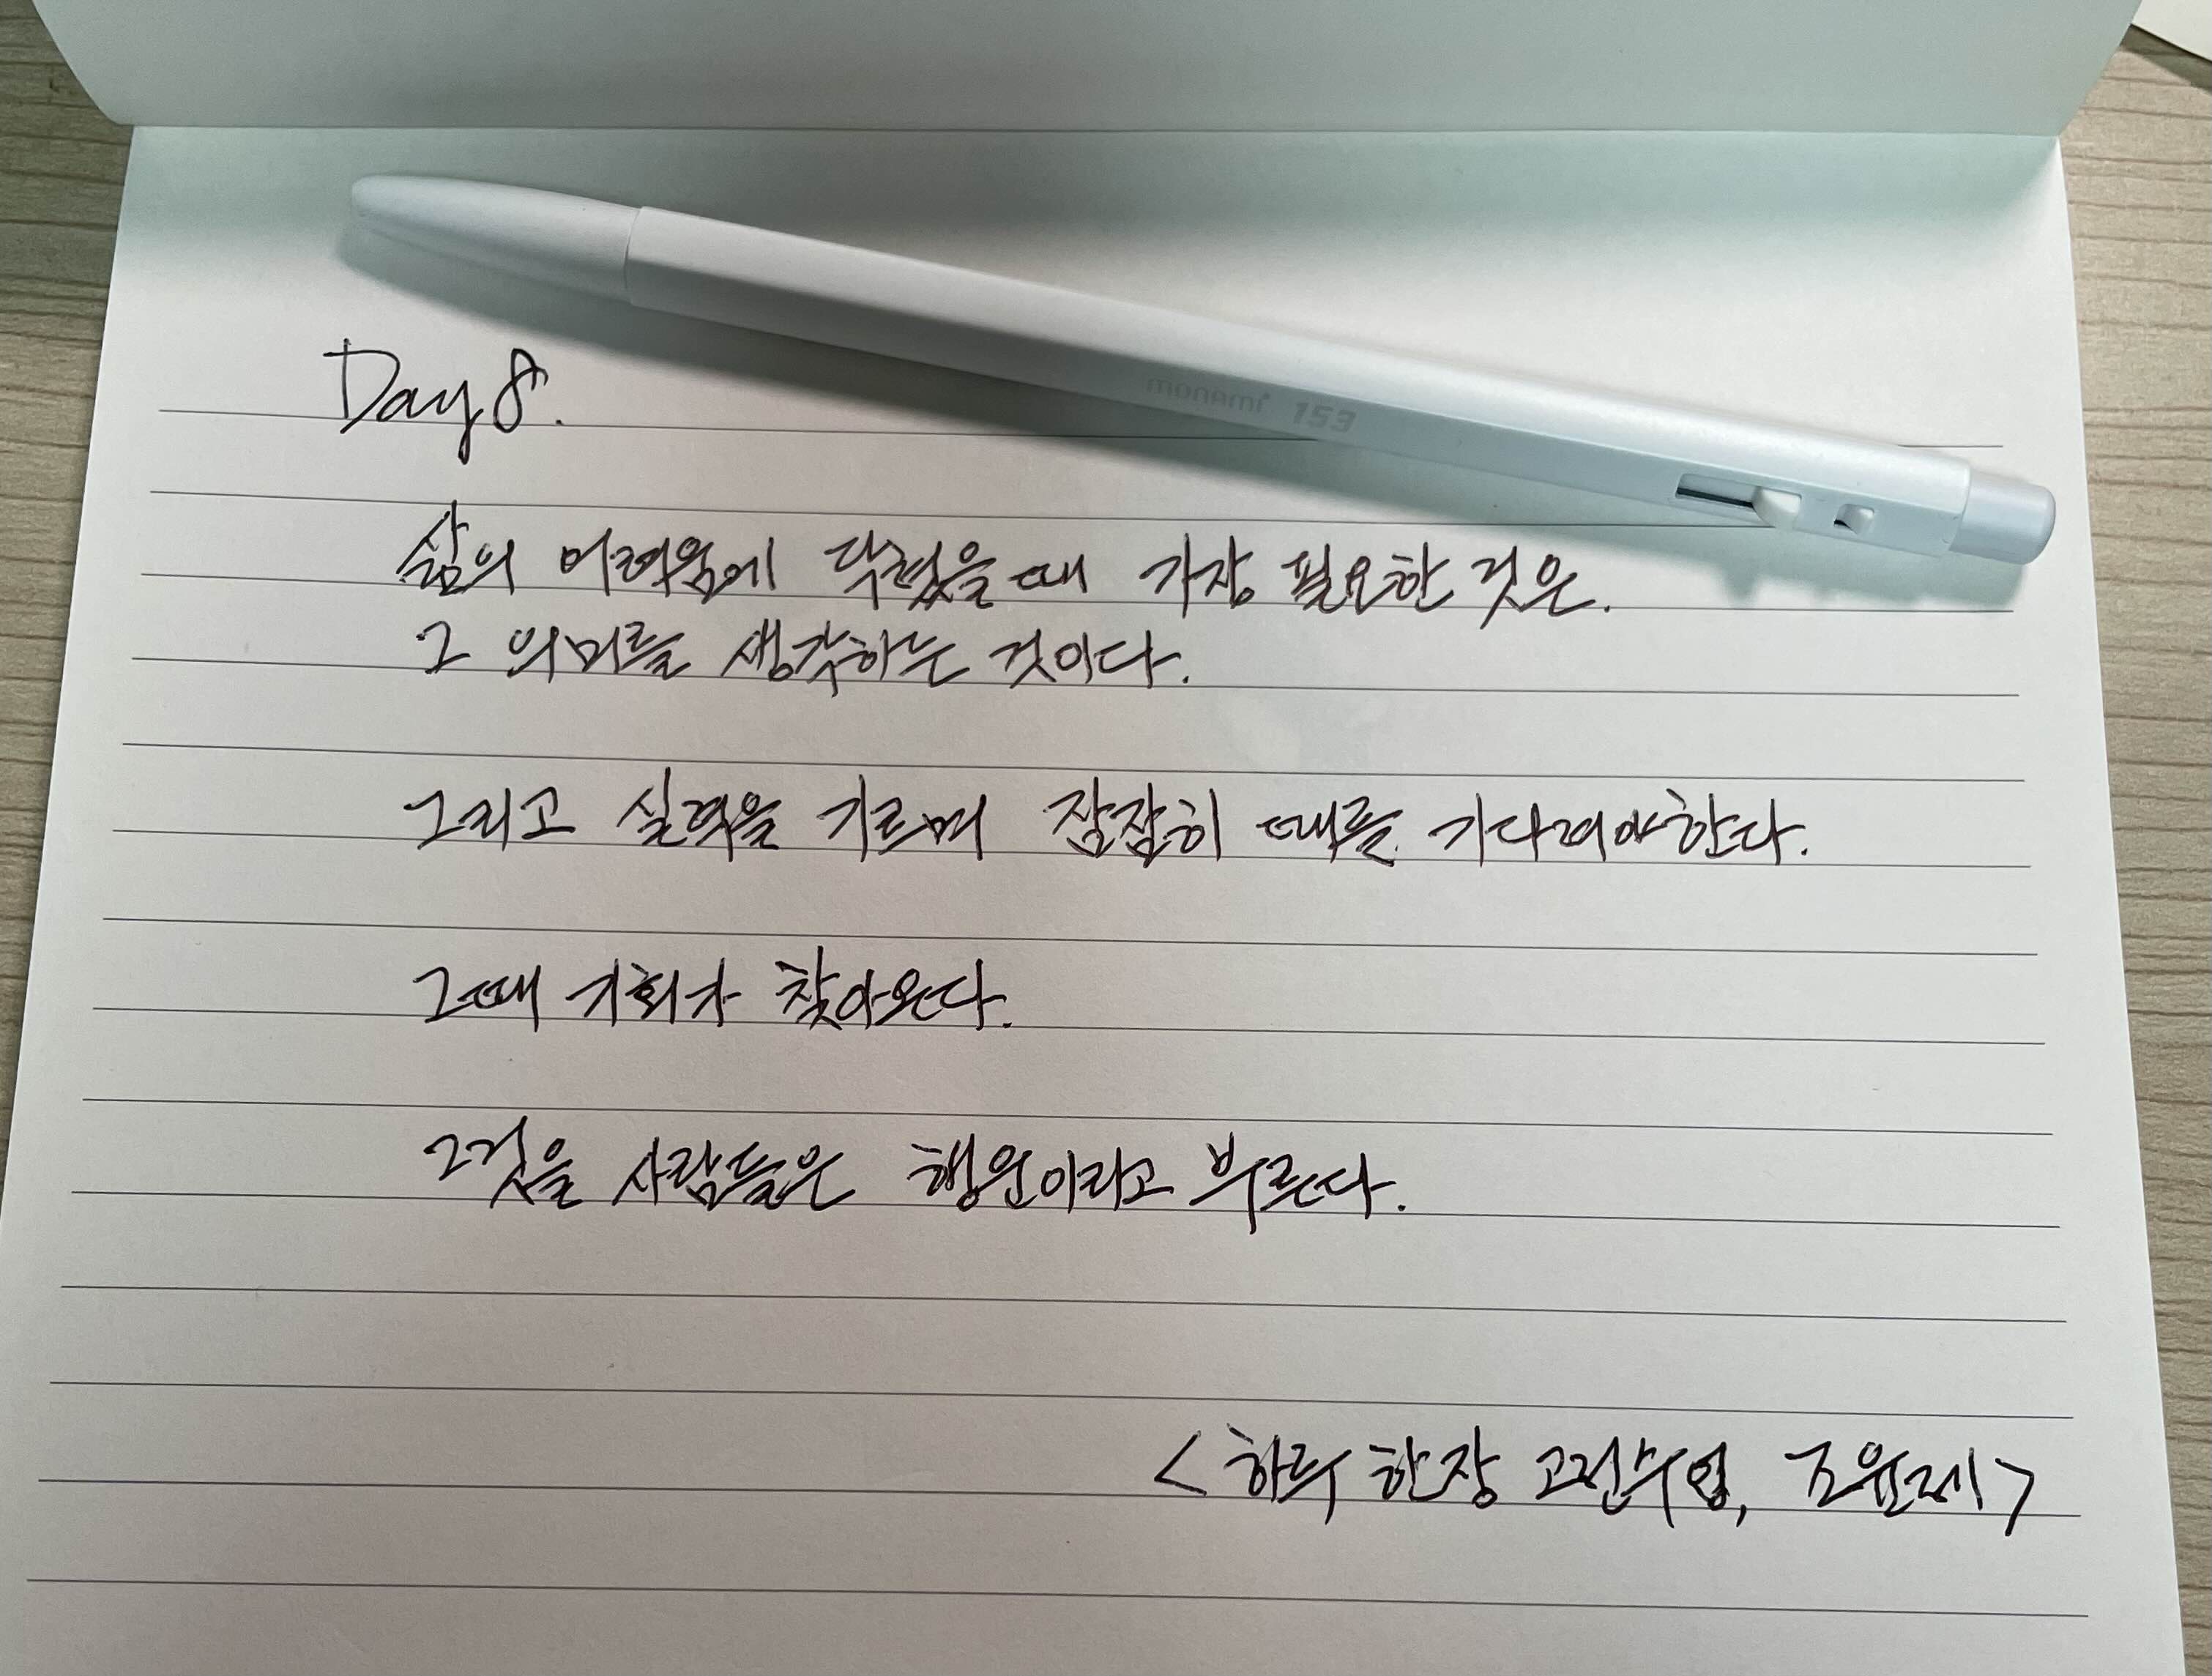 monami 153
Day 8.
삶의 어려움에 닥쳤을 때 가장 필요한 것은.
그 의미를 생각하는 것이다.
그리고 실력을 기르며 잠잠히 때를 기다려야한다.
그때 기회가 찾아온다.
그것을 사람들은 행운이라고 부른다.
<하루 한장 고전수업, 조윤제>